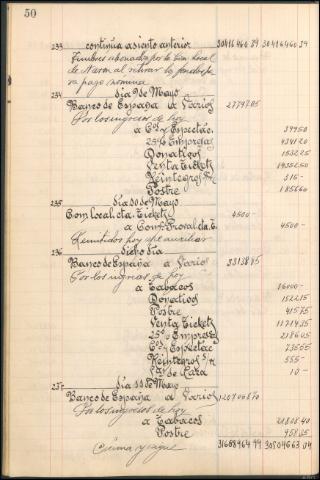 50
233 continúa asiento anterior 30416460 29 30416460 29
Timbres abonados por la Com. local
de Narón al retirar
para pago nomina
234 día 9 de Mayo
Banco de España a Varios 2779705
Por los ingresos de hoy
a Cºs y Espectác. 39950
25% Empresas 434120
Donativos 153225
Venta Tickets
Reintegros S/n 315-
Postre 185660
235 día 10 de Mayo
Com. local cta. Tickets 4500-
a Com. Proval. cta. T. 4500-
Remitidos hoy
236 dicho día
Banco de España a Varios 3313885
Por los ingresos de hoy
a Tabacos 16000-
Donativos 152215
Postre 41575
Venta Tickets 1171435
25% Empresas 218605
Cºs y Espectác 23555
Reintegros S/n 555-
de Caza 10-
237 día 11 de Mayo
Banco de España a Varios
Por los ingresos de hoy
a Tabacos
Postre
Suma y sigue